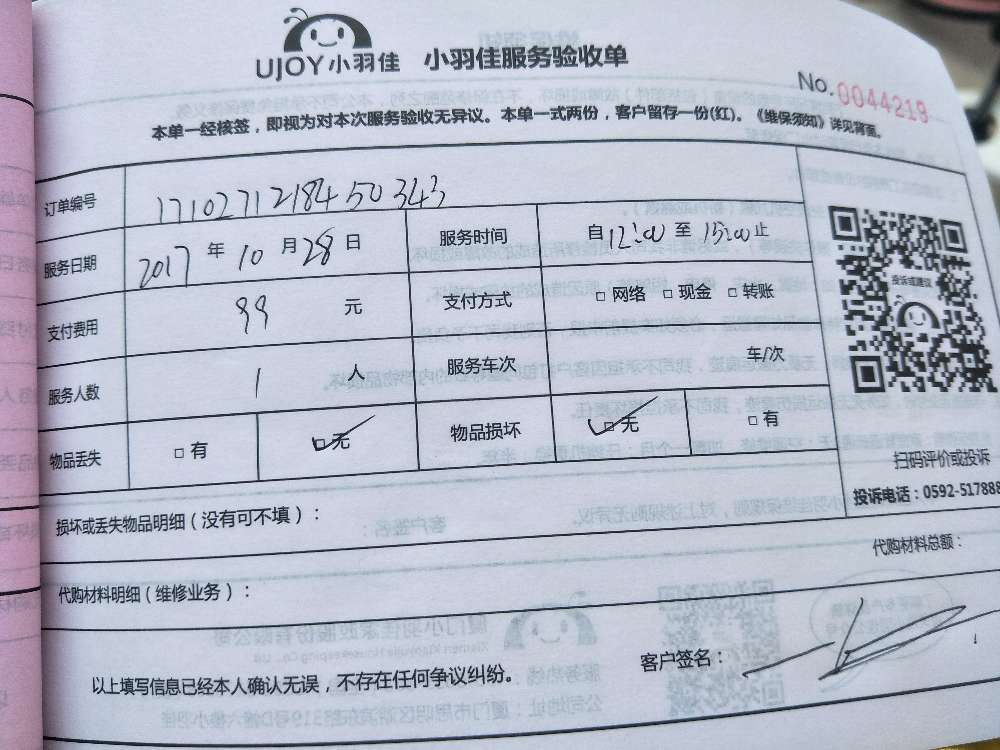 UJOY小羽佳 小羽佳服务验收单
No.0044219
本单一经核签，即视为对本次服务验收无异议。本单一式两份，客户留存一份(红)。《维保须知》详见背面。
订单编号 1710271218450343
服务日期 2017 年 10 月 28 日 服务时间 自12:00 至 15:00 止
支付费用 99 元 支付方式 □ 网络 □ 现金 □ 转账
服务人数 1 人 服务车次 车/次
物品丢失 □ 有 ☑ 无 物品损坏 ☑ 无 □ 有
投诉或建议
扫码评价或投诉
投诉电话：0592-517888
损坏或丢失物品明细（没有可不填）：
代购材料总额：
代购材料明细（维修业务）：
以上填写信息已经本人确认无误，不存在任何争议纠纷。
客户签名：